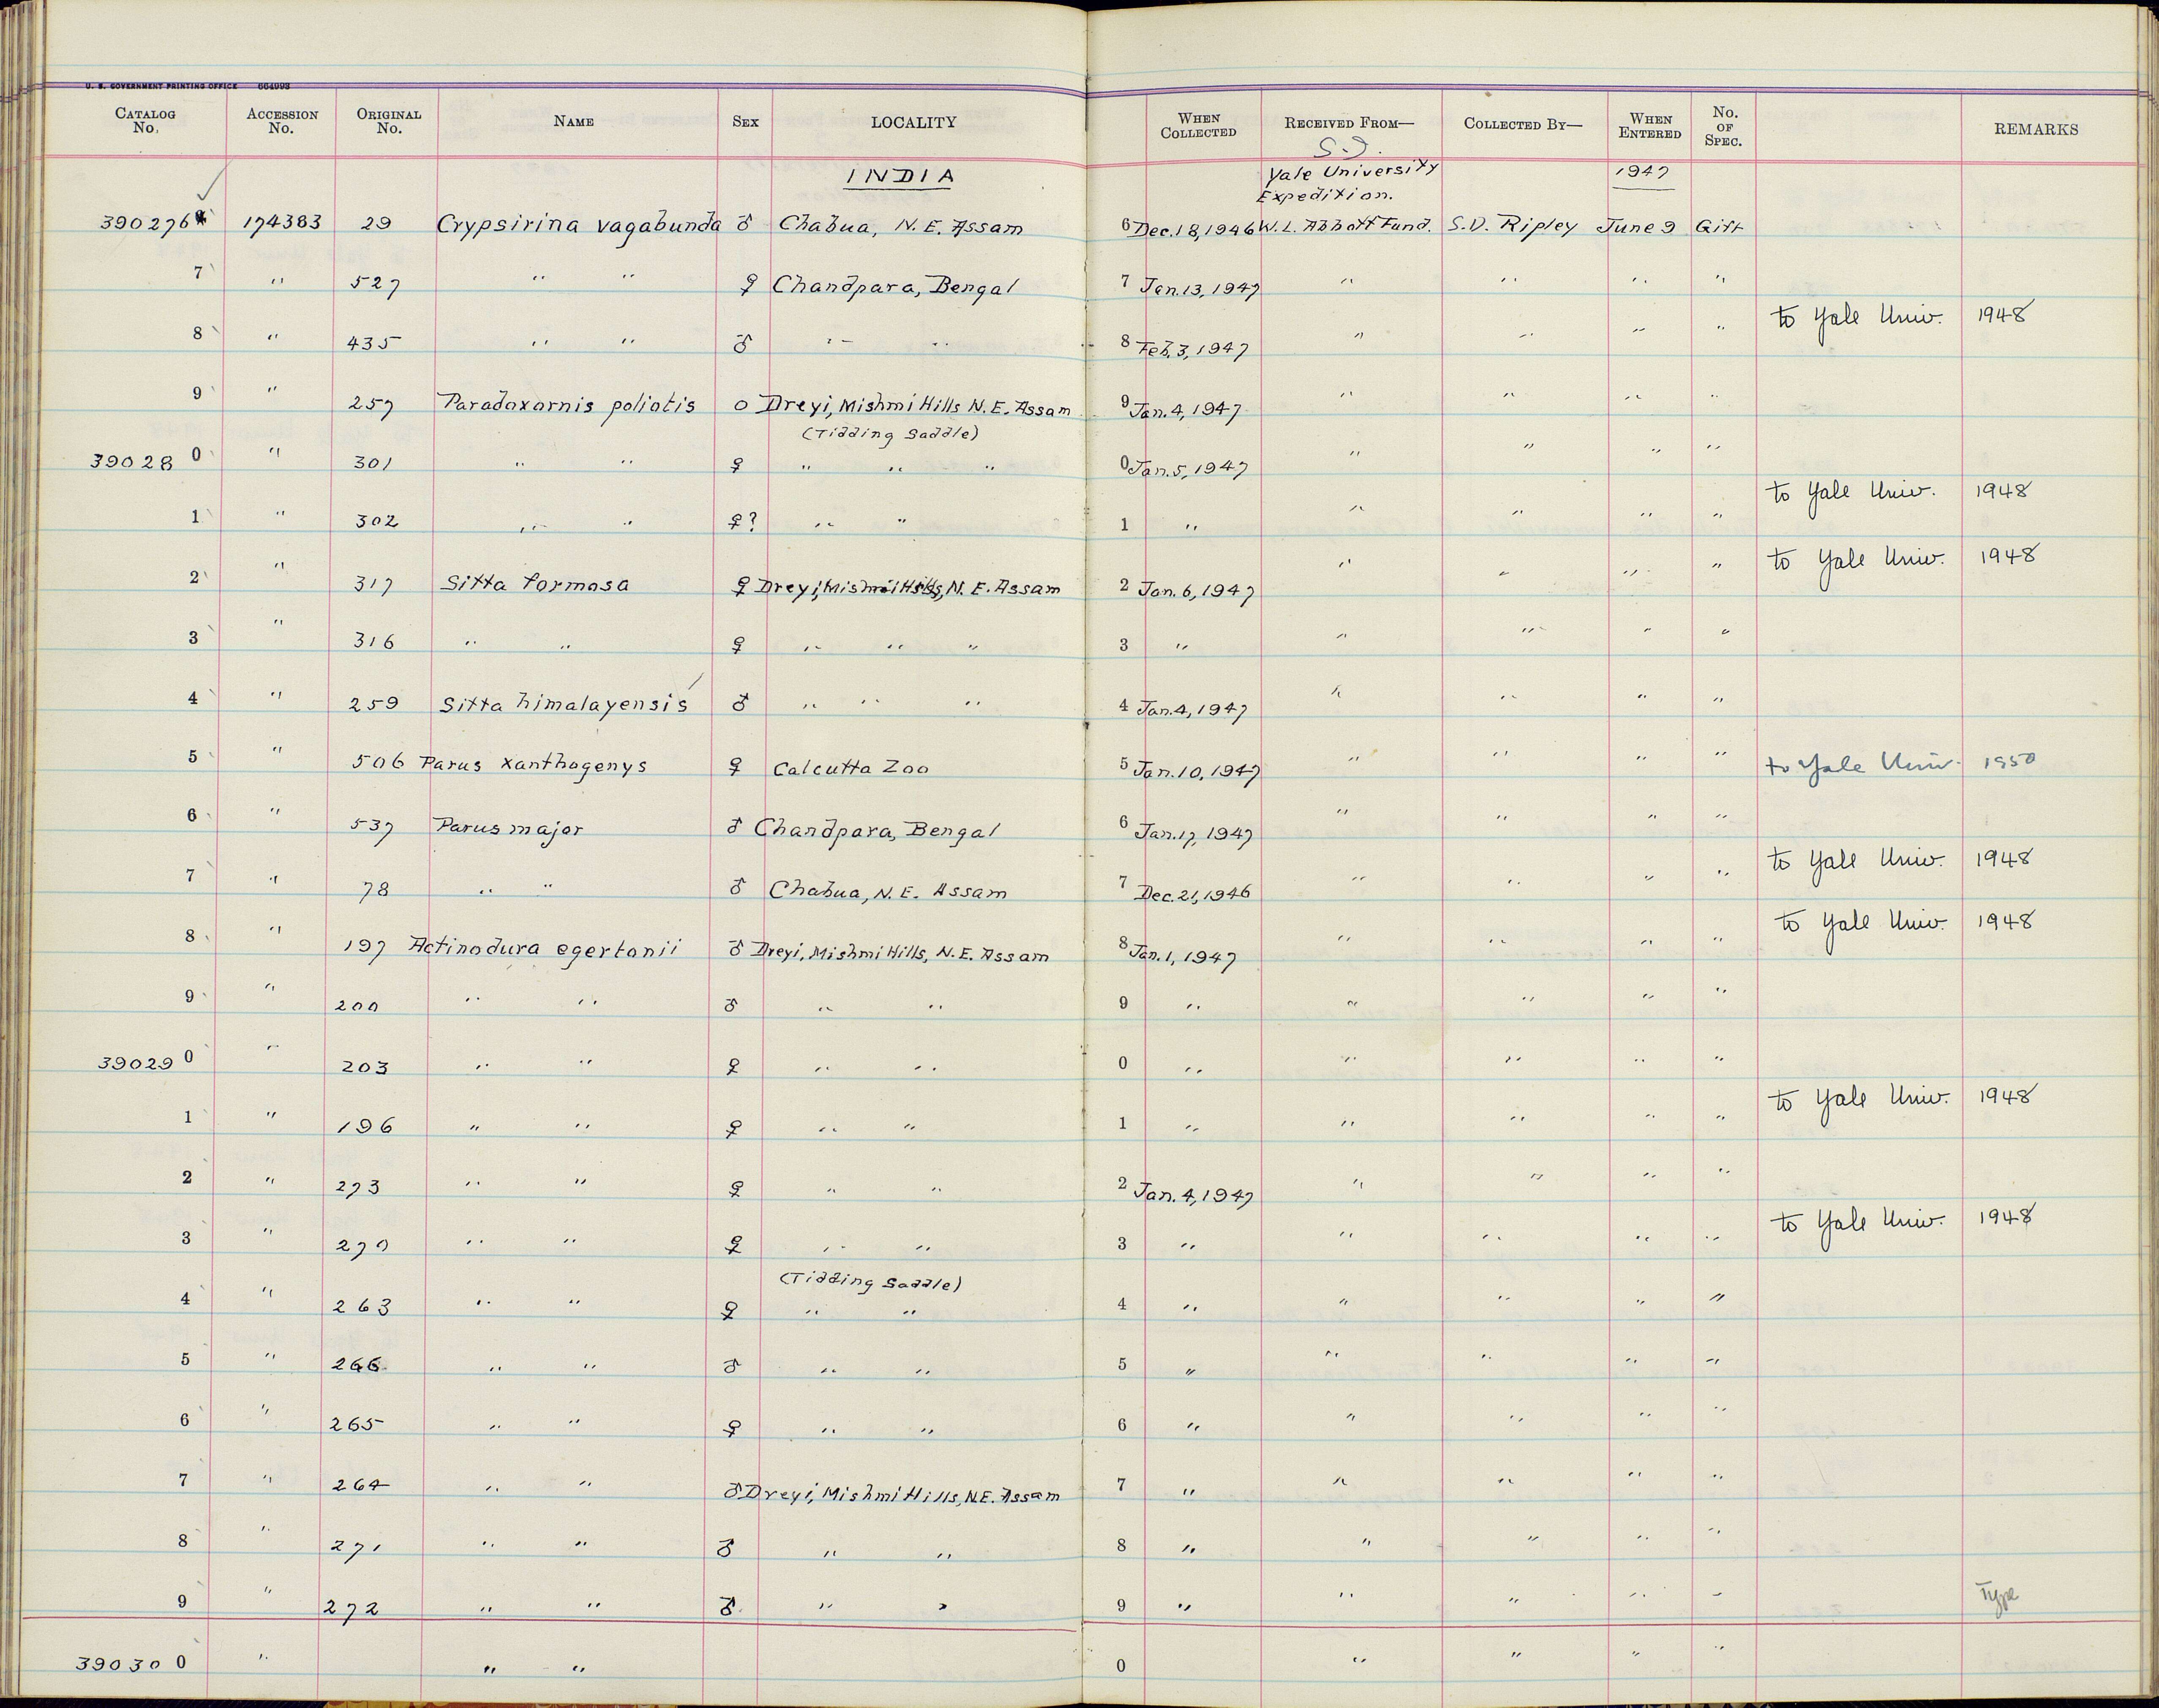 U. S. GOVERNMENT PRINTING OFFICE 664993
CATALOG No. ACCESSION No. ORIGINAL No. NAME SEX LOCALITY WHEN COLLECTED RECEIVED FROM— COLLECTED BY— WHEN ENTERED No. OF SPEC. REMARKS
S.I.
INDIA Yale University 1947
Expedition.
390276 174383 29 Crypsirina vagabunda ♂ Chabua, N.E. Assam 6 Dec. 18, 1946 W.L. Abbott Fund. S.D. Ripley June 9 Gift
7 " 527 " " ♀ Chandpara, Bengal 7 Jan. 13, 1947 " " " "
8 " 435 " " ♂ " " 8 Feb. 3, 1947 " " " " to Yale Univ. 1948
9 " 257 Paradoxornis poliotis o Dreyi, Mishmi Hills N.E. Assam 9 Jan. 4, 1947 " " " "
(Tidding Saddle)
390280 " 301 " " ♀ " " " 0 Jan. 5, 1947 " " " "
1 " 302 " " ♀? " " 1 " " " " " to Yale Univ. 1948
2 " 317 Sitta formosa ♀ Dreyi, Mishmi Hills, N.E. Assam 2 Jan. 6, 1947 " " " " to Yale Univ. 1948
3 " 316 " " ♀ " " " 3 " " " " "
4 " 259 Sitta himalayensis ♂ " " " 4 Jan. 4, 1947 " " " "
5 " 506 Parus xanthogenys ♀ Calcutta Zoo 5 Jan. 10, 1947 " " " " to Yale Univ. 1950
6 " 537 Parus major ♂ Chandpara, Bengal 6 Jan. 17, 1947 " " " "
7 " 78 " " ♂ Chabua, N.E. Assam 7 Dec. 21, 1946 " " " " to Yale Univ. 1948
8 " 197 Actinodura egertonii ♂ Dreyi, Mishmi Hills, N.E. Assam 8 Jan. 1, 1947 " " " " to Yale Univ. 1948
9 " 200 " " ♂ " " 9 " " " " "
390290 " 203 " " ♀ " " 0 " " " " "
1 " 196 " " ♀ " " 1 " " " " " to Yale Univ. 1948
2 " 273 " " ♀ " " 2 Jan. 4, 1947 " " " "
3 " 270 " " ♀ " " 3 " " " " " to Yale Univ. 1948
(Tidding Saddle)
4 " 263 " " ♀ " " 4 " " " " "
5 " 266 " " ♂ " " 5 " " " " "
6 " 265 " " ♀ " " 6 " " " " "
7 " 264 " " ♂ Dreyi, Mishmi Hills, N.E. Assam 7 " " " " "
8 " 271 " " ♂ " " 8 " " " " "
9 " 272 " " ♂ " " 9 " " " " " Type
390300 " " " 0 " " " "